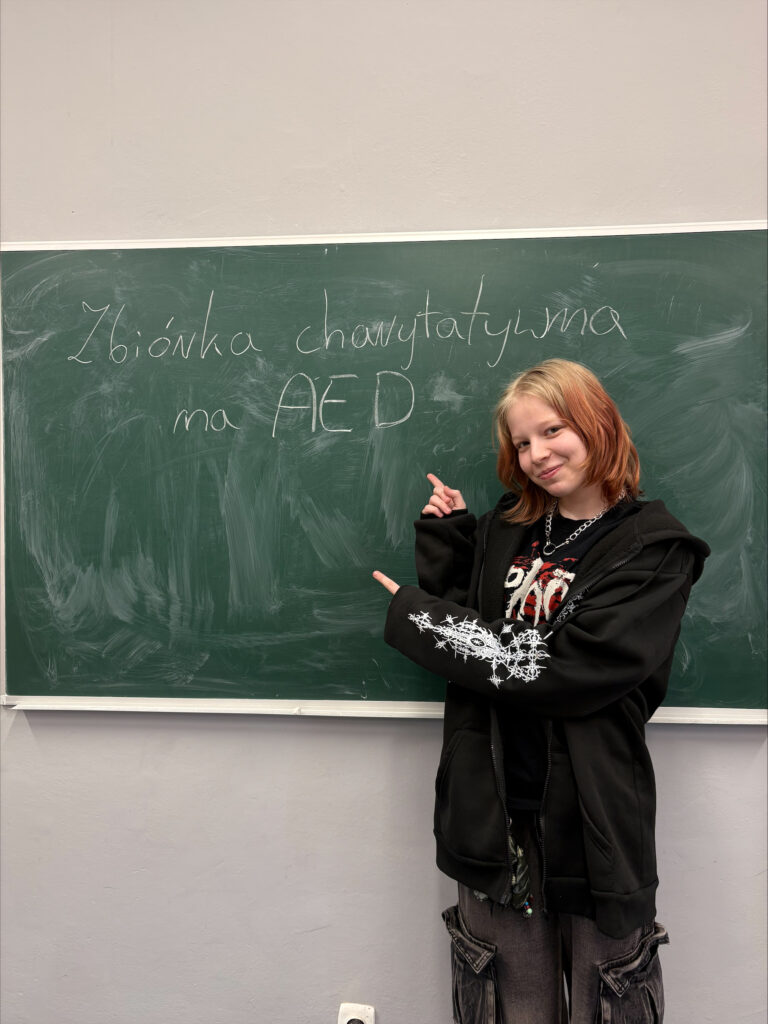 Zbiórka charytatywna
na AED